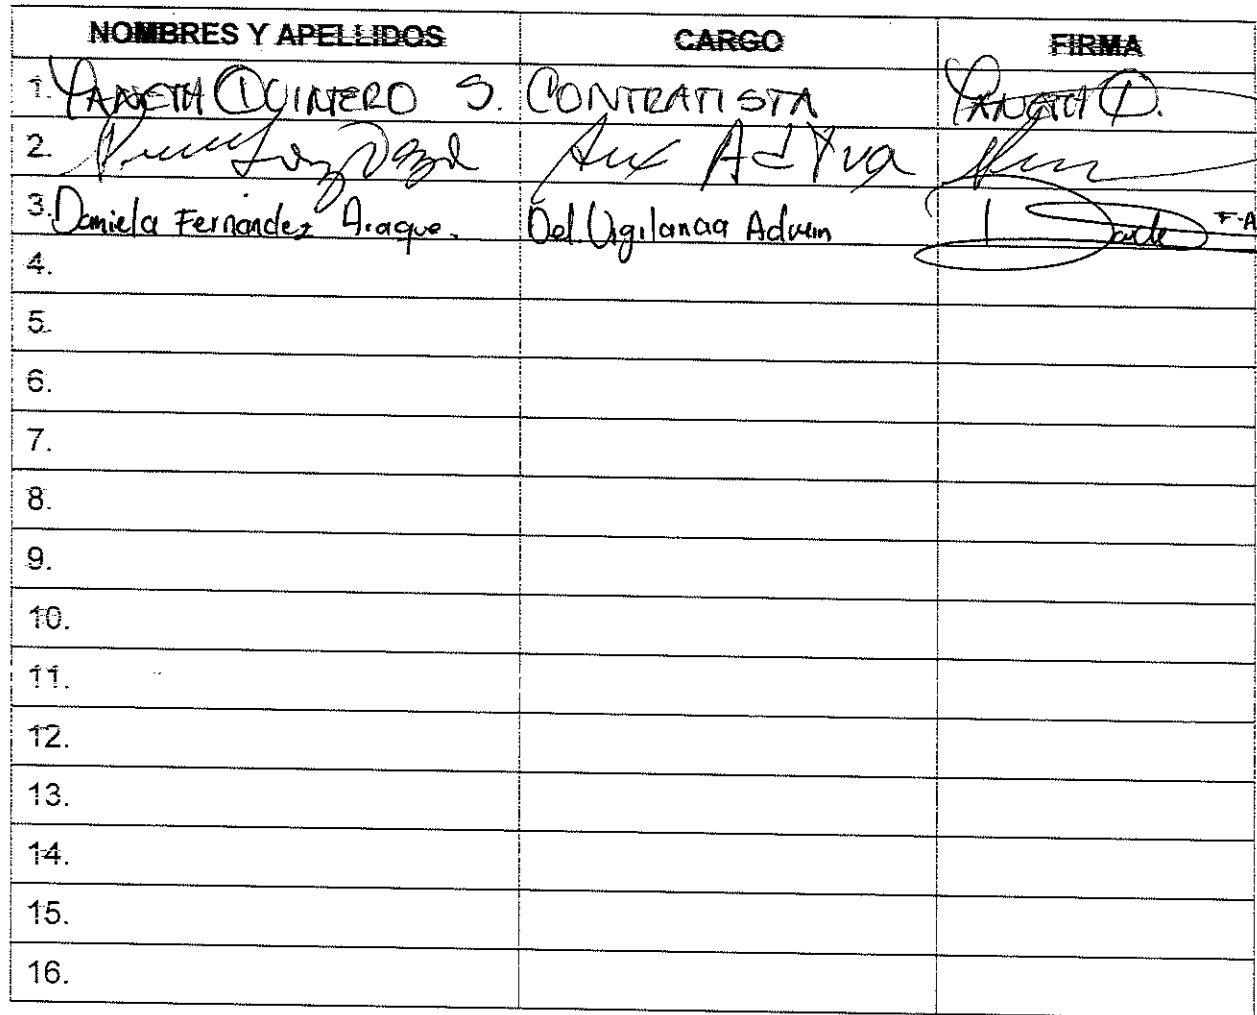 NOMBRES Y APELLIDOS CARGO FIRMA
1. YANETH QUINTERO S. CONTRATISTA YANETH Q.
2. Aux AdTva
3. Daniela Fernandez Araque. Del. Vigilancia Advem
4.
5.
6.
7.
8.
9.
10.
11.
12.
13.
14.
15.
16.